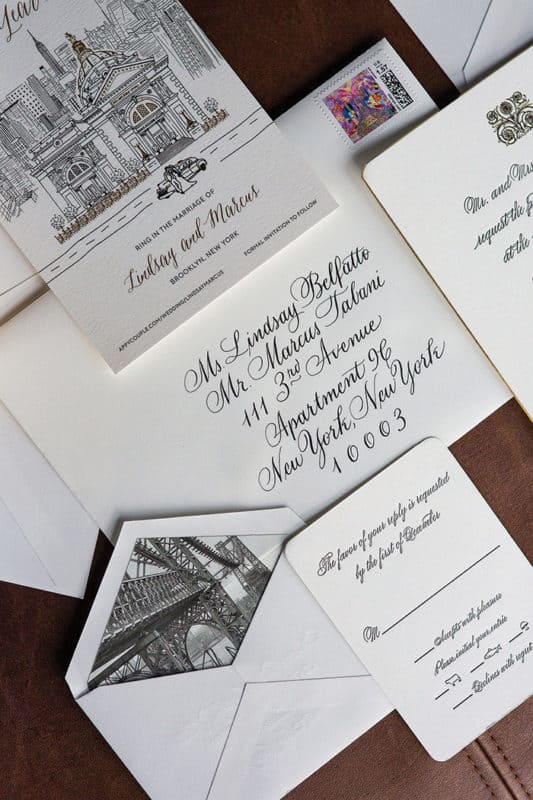 Year
RING IN THE MARRIAGE OF
Lindsay and Marcus
BROOKLYN, NEW YORK
FORMAL INVITATION TO FOLLOW
APPYCOUPLE.COM/WEDDING/LINDSAYMARCUS
Ms Lindsay Belfatto
Mr. Marcus Tabani
111 3rd Avenue
Apartment 9G
New York, New York
10003
Mr. and Mrs
request the
at the
The favor of your reply is requested
by the first of December
M
Accepts with pleasure
Please initial your entrée
Declines with regret